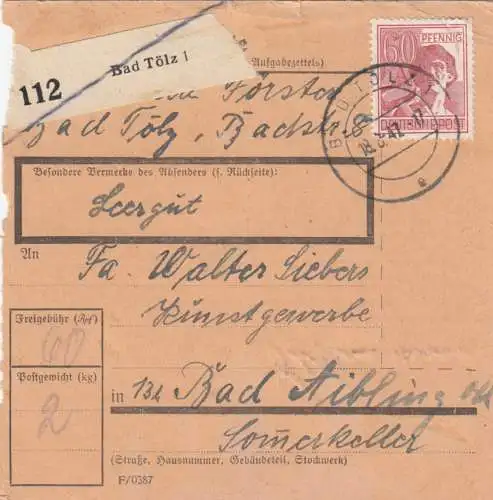 112 Bad Tölz 1
Aufgabezettels)
60 PFENNIG
DEUTSCHE POST
BAD TÖLZ 1
Förster
Bad Tölz, Badstr. 8
Besondere Vermerke des Absenders (s. Rückseite):
Leergut
An
Fa. Walter Siebers
Kunstgewerbe
Freigebühr (Rpf)
60
Postgewicht (kg)
2
in 13b Bad Aibling Obb
Somerkeller
(Straße, Hausnummer, Gebäudeteil, Stockwerk)
F/0387